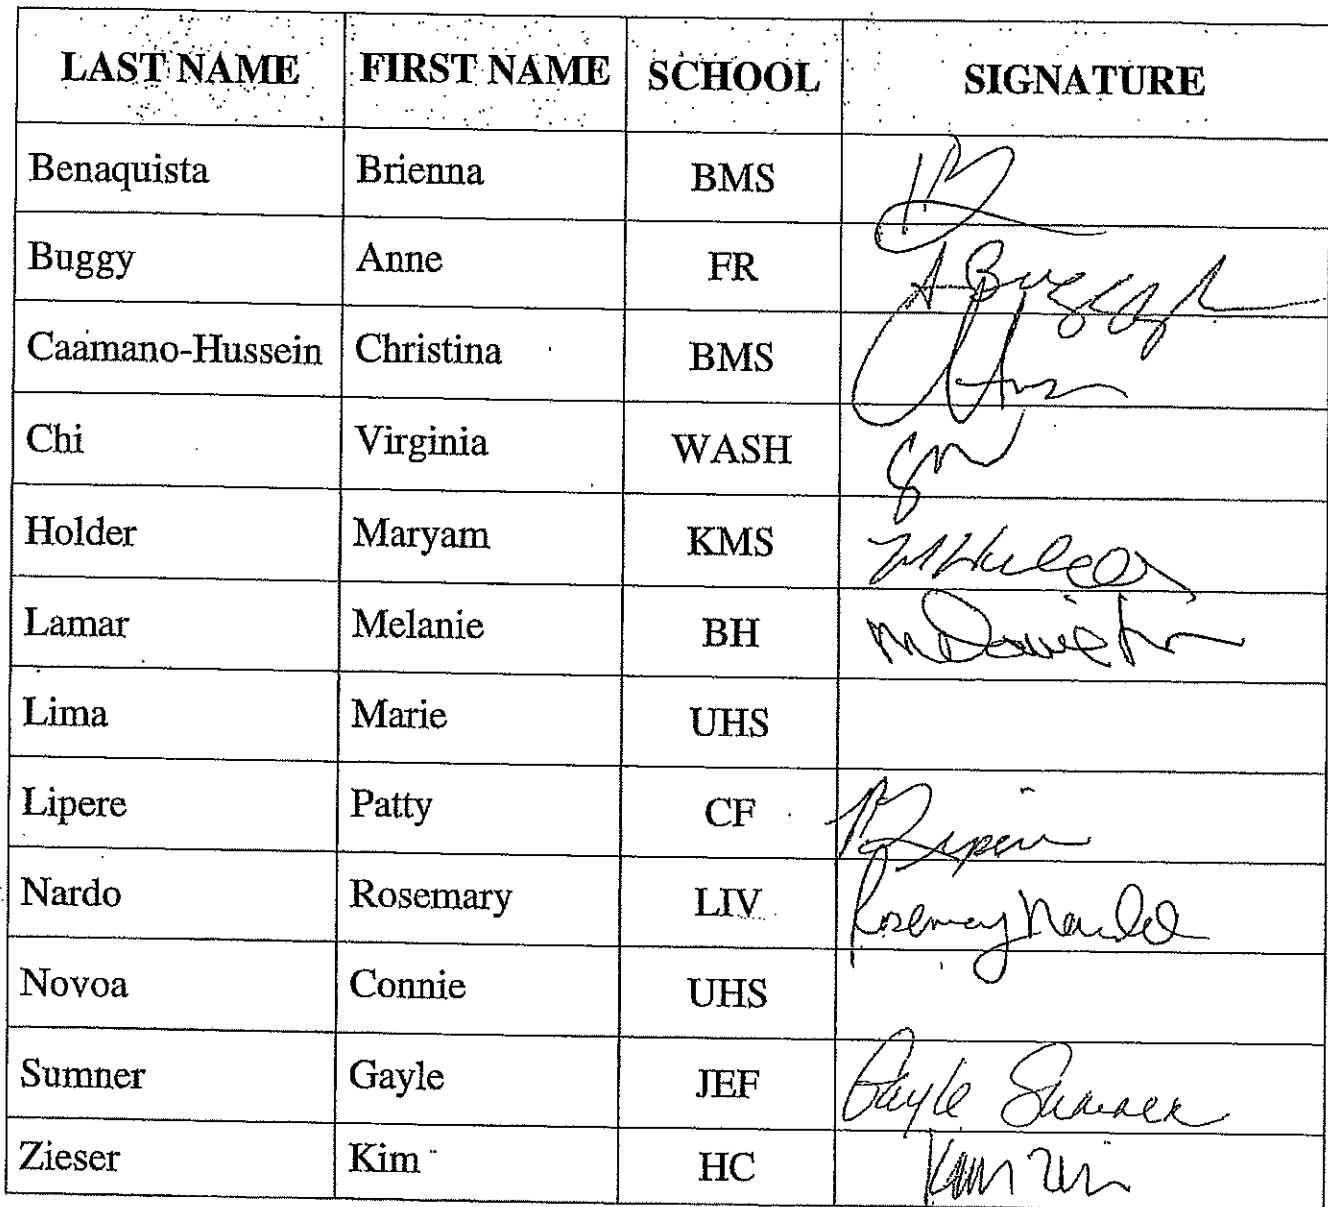 LAST NAME FIRST NAME SCHOOL SIGNATURE
Benaquista Brienna BMS
Buggy Anne FR A Buggy
Caamano-Hussein Christina BMS
Chi Virginia WASH
Holder Maryam KMS M Holder
Lamar Melanie BH
Lima Marie UHS
Lipere Patty CF
Nardo Rosemary LIV Rosemary Nardo
Novoa Connie UHS
Sumner Gayle JEF Gayle Sumner
Zieser Kim HC Kim